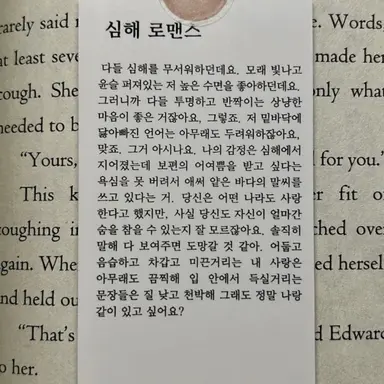 심해 로맨스
다들 심해를 무서워하던데요. 모래 빛나고
윤슬 퍼져있는 저 높은 수면을 좋아하던데요.
그러니까 다들 투명하고 반짝이는 상냥한
마음이 좋은 거잖아요. 그렇죠. 저 밑바닥에
닳아빠진 언어는 아무래도 두려워하잖아요.
맞죠. 그거 아시나요. 나의 감정은 심해에서
지어졌는데 보편의 어여쁨을 받고 싶다는
욕심을 못 버려서 애써 얕은 바다의 말씨를
쓰고 있다는 거. 당신은 어떤 나라도 사랑
한다고 했지만, 사실 당신도 자신이 얼마간
숨을 참을 수 있는지 잘 모르잖아요. 솔직히
말해 다 보여주면 도망갈 것 같아. 어둡고
음습하고 차갑고 미끈거리는 내 사랑은
아무래도 끔찍해 입 안에서 득실거리는
문장들은 질 낮고 천박해 그래도 정말 나랑
같이 있고 싶어요?
rarely said
e. Words,
at least seve
made her
rough. She
only what
needed to b
“Yours,
for you.”
This k
er fit of
coughing i
ched over
again. Whe
ed herself
and held ou
“That’s
d Edward
to her.